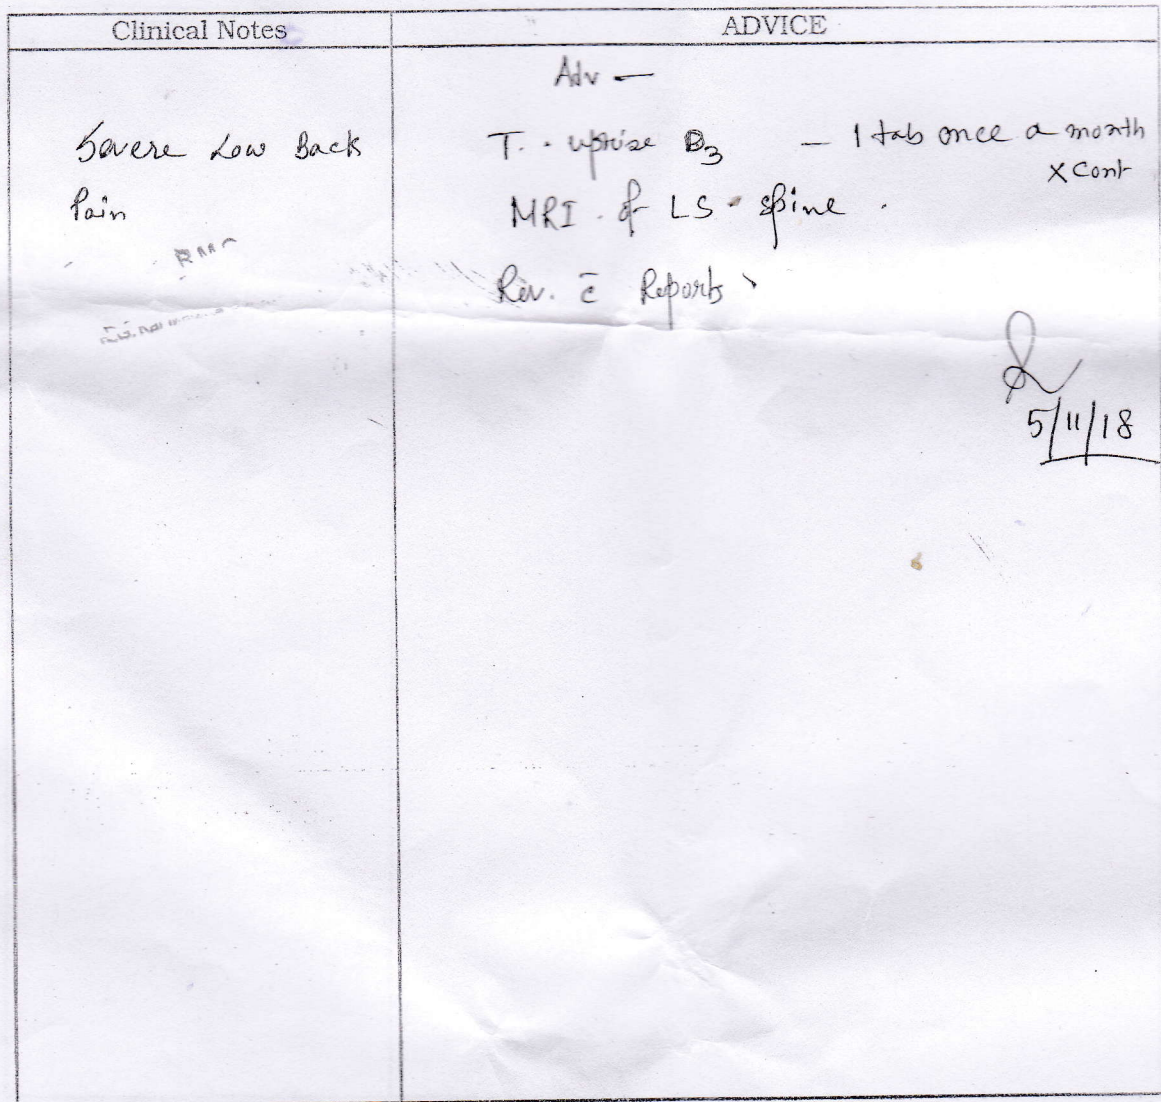 Clinical Notes
ADVICE
Adv —
Severe Low Back
Pain
T. uprise D3 — 1 tab once a month
x Cont
MRI of LS - spine .
Rev. c̄ Reports
5/11/18